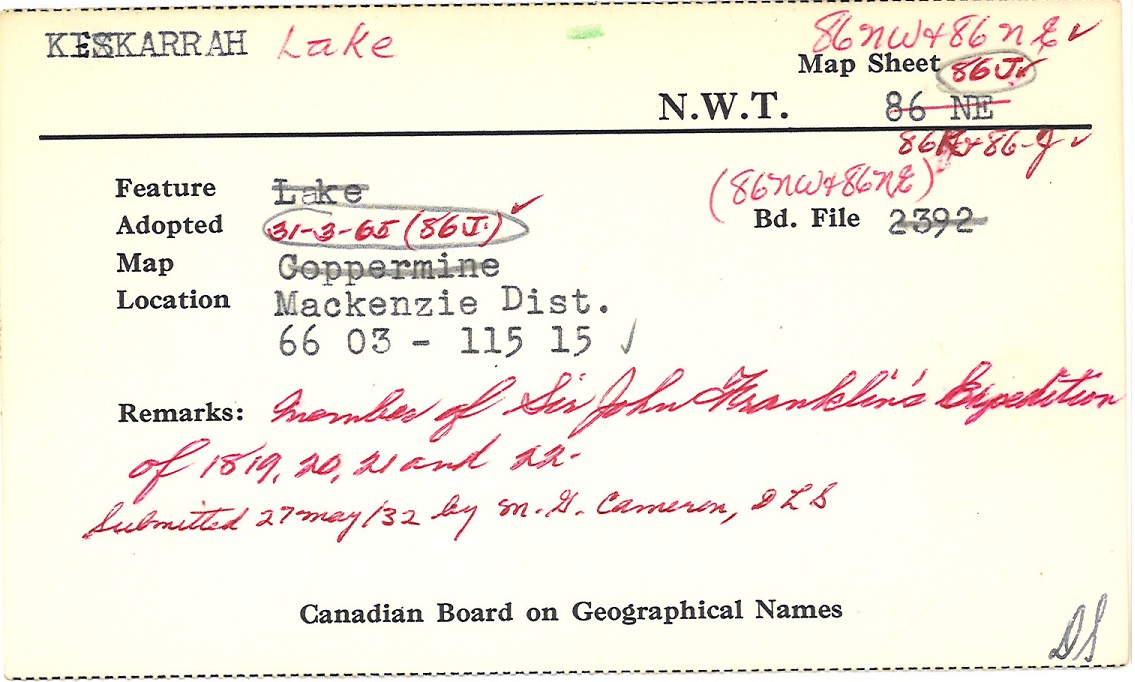 KESKARRAH Lake
86NW+86NE ✓
Map Sheet 86J ✓
N.W.T. 86 NE
86 +86-J ✓
(86NW+86NE)
Feature Lake
Adopted 31-3-65 (86J.) ✓
Bd. File 2392
Map Coppermine
Location Mackenzie Dist.
66 03 - 115 15 ✓
Remarks: Member of Sir John Franklin's Expedition
of 1819, 20, 21 and 22-
Submitted 27 May/32 by M. G. Cameron, DLS
Canadian Board on Geographical Names
DS